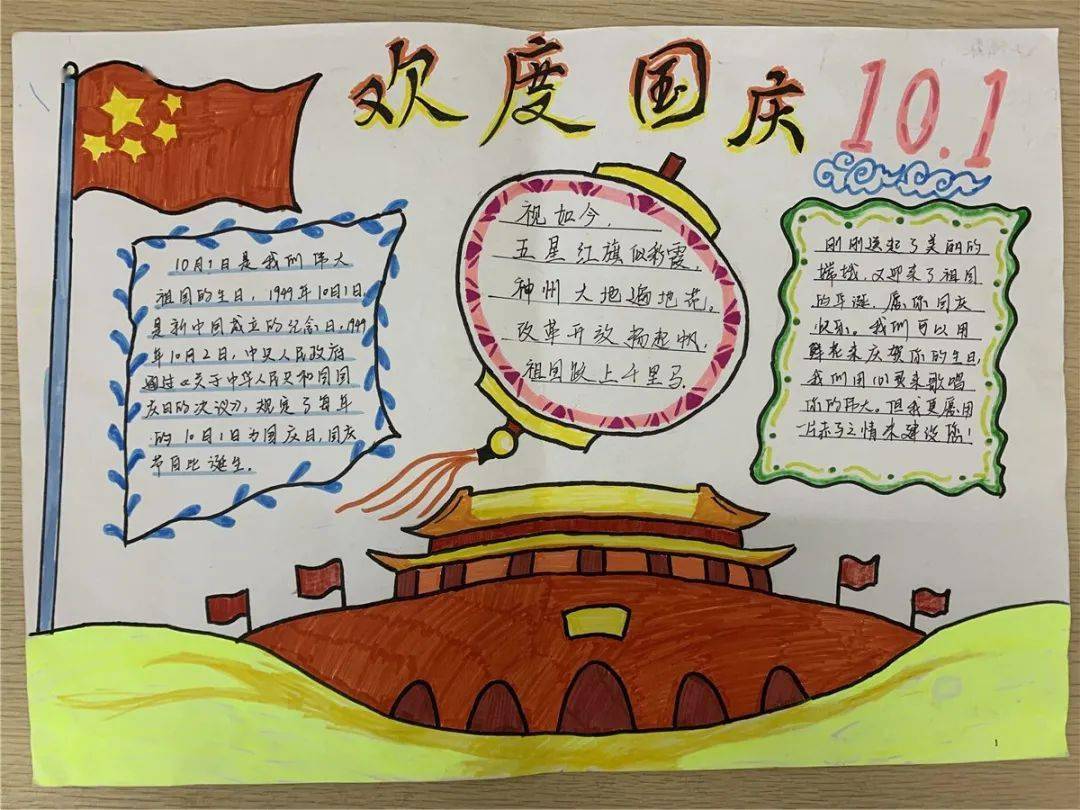 欢度国庆 10.1
10月1日是我们伟大
祖国的生日，1949年10月1日
是新中国成立的纪念日，1949
年10月2日，中央人民政府
通过《关于中华人民共和国国
庆日的决议》，规定了每年
的10月1日为国庆日，国庆
节日此诞生。
视如今，
五星红旗似彩霞，
神州大地遍地花。
改革开放扬起帆，
祖国跃上千里马
刚刚送起了美丽的
嫦娥，又迎来了祖国
的华诞，愿你国庆
快乐。我们可以用
鲜花来庆贺你的生日，
我们用 来歌唱
你的伟大。但我更愿用
一片赤子之情来建设你！
1